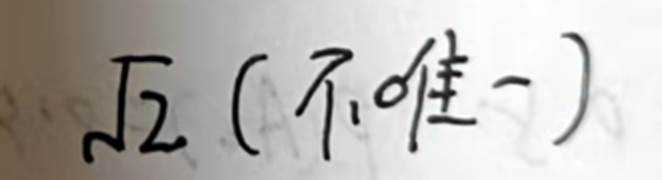 √2(不唯一)